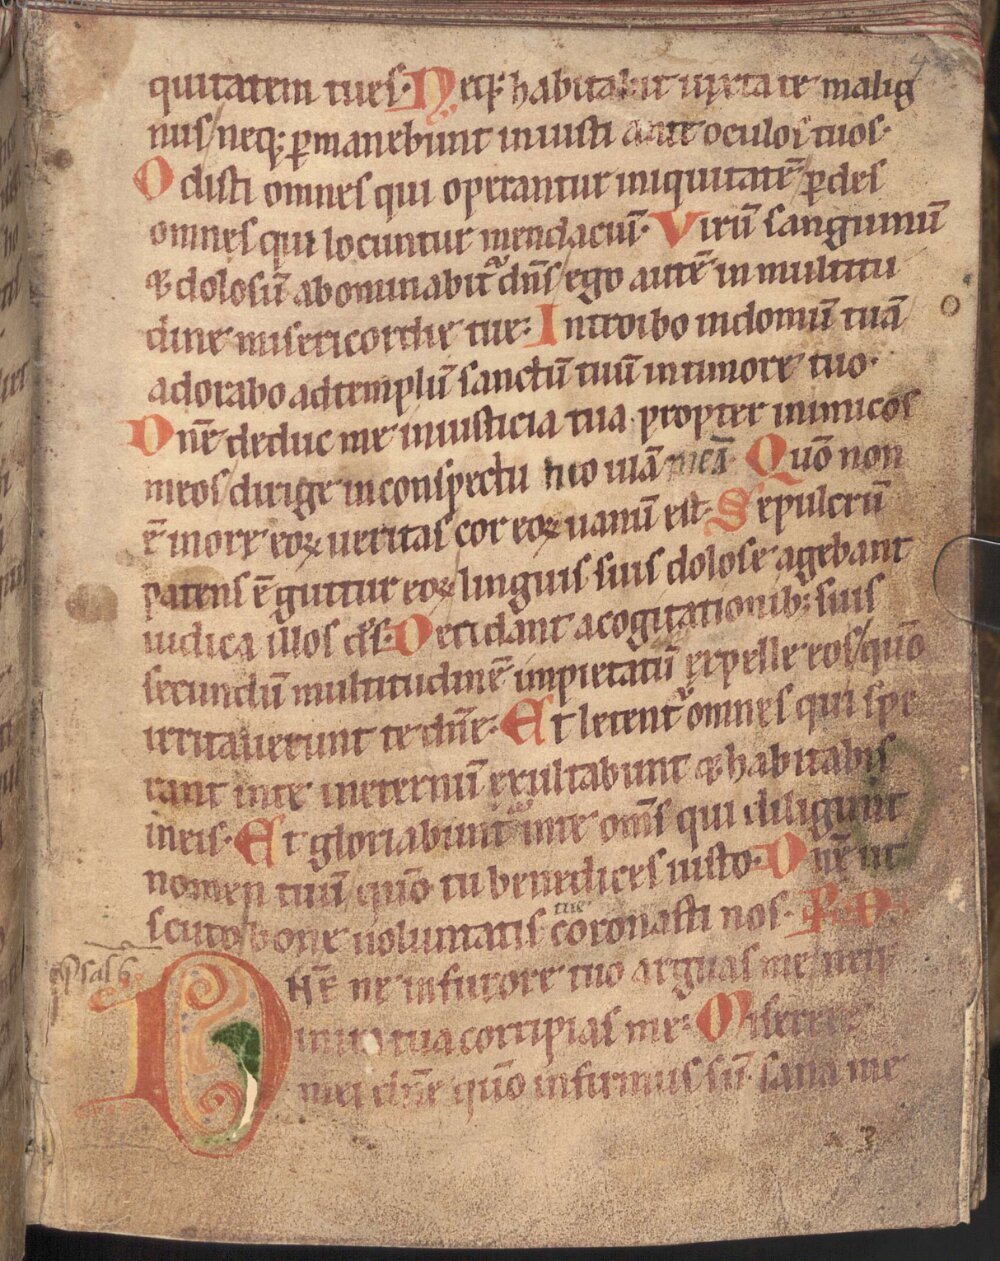 quitatem tu es· Neq; habitabit iuxta te malig
nus/ neq; ꝑmanebunt iniusti ante oculos tuos·
Odisti omnes qui operantur iniquitatē ꝑdes
omnes qui locuntur mendaciū· Virū sanguinū
& dolosū abominabit᷑ dn̄s/ ego autē in multitu
dine misericordie tue: Introibo in domū tuā
adorabo ad templū sanctū tuū in timore tuo·
Dn̄e deduc me in iusticia tua propter inimicos
meos/ dirige in conspectu tuo uiā meā· Quō non
ē in ore eoꝝ ueritas cor eoꝝ uanū est· Sepulcrū
patens ē guttur eoꝝ linguis suis dolose agebant
iudica illos ds̄· Decidant a cogitationib; suis
secundū multitudinē impietatū expelle eos/ quō
irritauerunt te dn̄e· Et letent᷑ omnes qui spe
rant in te in eternū exultabunt & habitabis
in eis· Et gloriabunt᷑ in te om̄s qui diligunt
nomen tuū quō tu benedices iusto· Dn̄e ut
scuto bone uoluntatis tue coronasti nos·
psal 6
Dn̄e ne in furore tuo arguas me neq;
in ira tua corripias me: Miserere
mei dn̄e quō infirmus sū· sana me